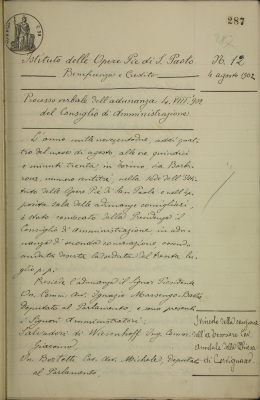 287
Istituto delle Opere Pie di S. Paolo
N. 12
Beneficenza e Credito
4 agosto 1902
Processo verbale dell'adunanza 4. VIII. 902
del Consiglio di Amministrazione
L'anno mille novecentodue, addì quat-
tro del mese di agosto, alle ore quindici
e minuti trenta, in Torino, via Barba-
roux, numero ventinove, nella sede dell'Isti-
tuto delle Opere Pie di San Paolo e nell'ap-
posita sala delle adunanze consigliari,
è stato convocato dalla Presidenza il
Consiglio di Amministrazione in adu-
nanza di seconda convocazione essendo
andata deserta la seduta del trenta lu-
glio p. p.
Presiede l'adunanza il Signor Presidente
On. Comm. Avv. Ignazio Marsengo-Bastia
Deputato al Parlamento, e sono presenti
i Signori Amministratori:
Salvadori di Wiesenhoff Ing. Comm.
Giacomo
On. Bertetti Cav. Avv. Michele, deputato
al Parlamento
della
di Cervignasco